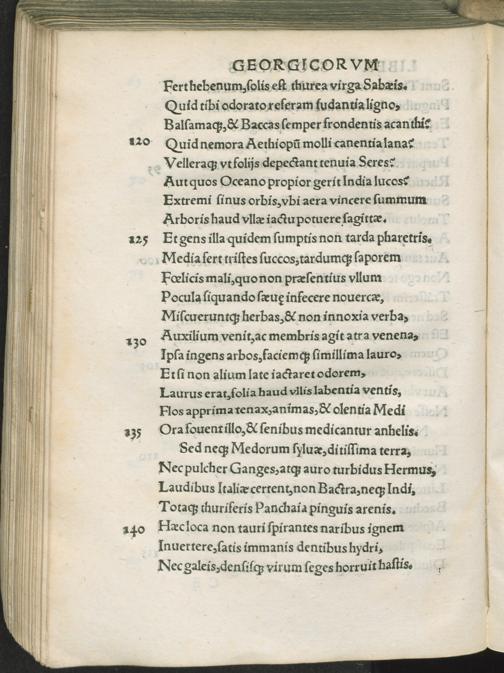 GEORGICORVM
Fert hebenum, solis est thurea virga Sabæis.
Quid tibi odorato referam sudantia ligno,
Balsamaq;, & Baccas semper frondentis acanthi?
120 Quid nemora Aethiopū molli canentia lana?
Velleraq; vt folijs depectant tenuia Seres?
Aut quos Oceano propior gerit India lucos?
Extremi sinus orbis, vbi aera vincere summum
Arboris haud vllæ iactu potuere sagittæ.
125 Et gens illa quidem sumptis non tarda pharetris.
Media fert tristes succos, tardumq; saporem
Fœlicis mali, quo non præsentius vllum
Pocula siquando sæuę infecere nouercæ,
Miscueruntq; herbas, & non innoxia verba,
130 Auxilium venit, ac membris agit atra venena,
Ipsa ingens arbos, faciemq; simillima lauro,
Et si non alium late iactaret odorem,
Laurus erat, folia haud vllis labentia ventis,
Flos apprima tenax, animas, & olentia Medi
135 Ora fouent illo, & senibus medicantur anhelis.
Sed neq; Medorum syluæ, ditissima terra,
Nec pulcher Ganges, atq; auro turbidus Hermus,
Laudibus Italiæ certent, non Bactra, neq; Indi,
Totaq; thuriferis Panchaia pinguis arenis.
140 Hæc loca non tauri spirantes naribus ignem
Inuertere, satis immanis dentibus hydri,
Nec galeis, densisq; virum seges horruit hastis.